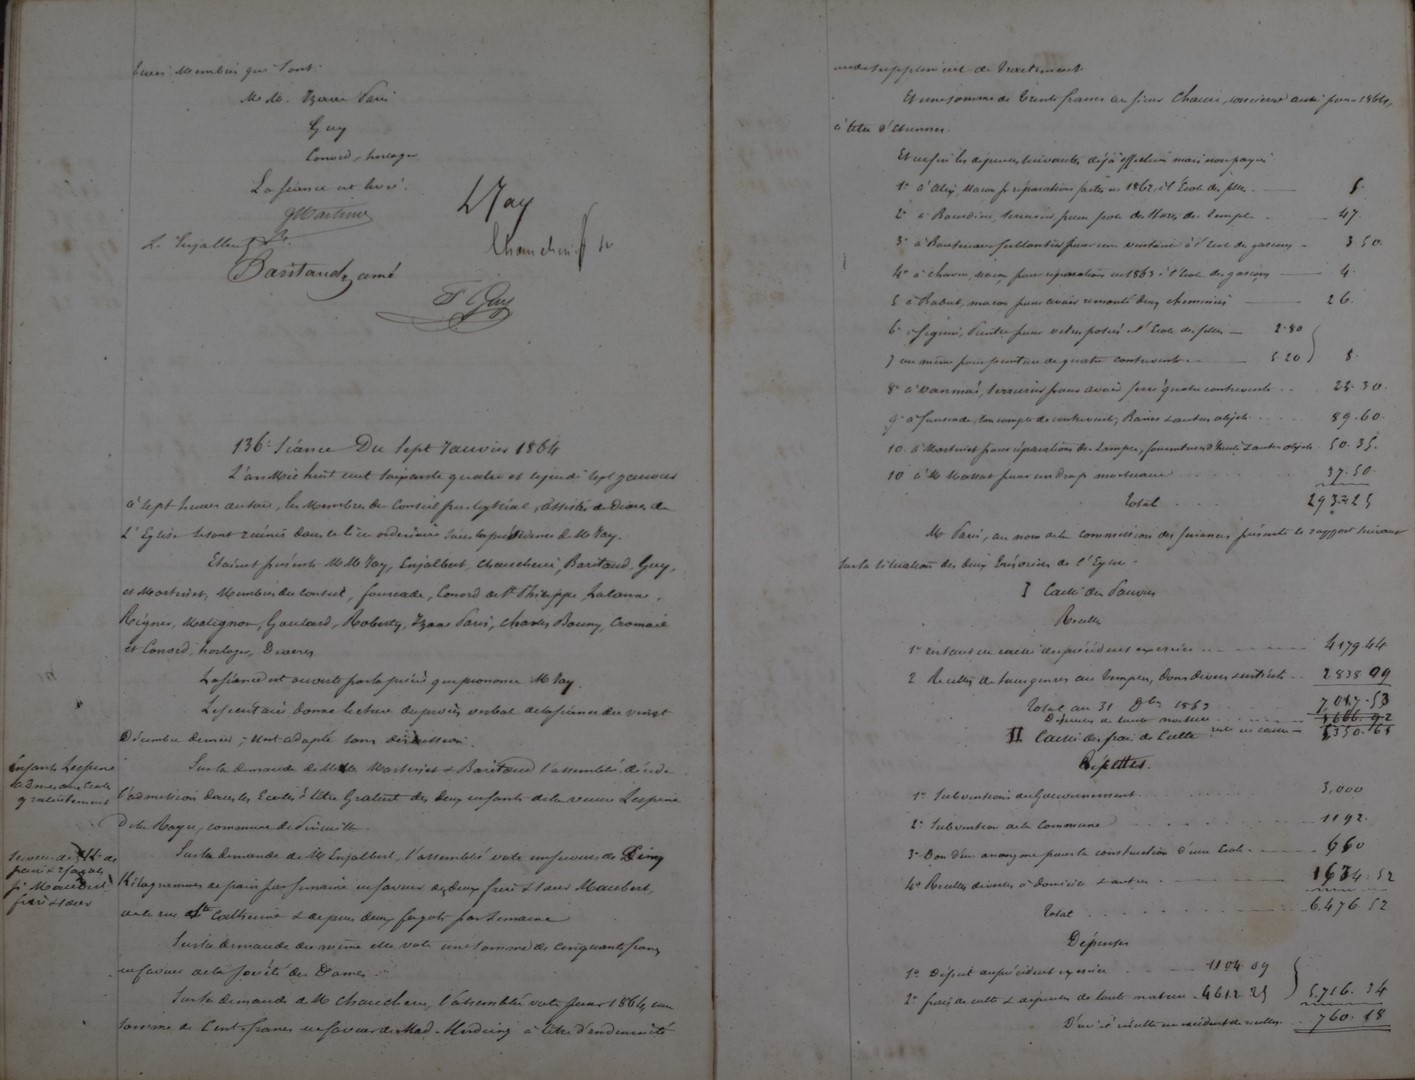 trois Membres qui sont:
M.M. Isaac Paris
Guy
Conord, horloger
La séance est levée.
GMartinet
L. Enjalbert
L Nay
Baritaud, aîné
P Guy
136e Séance Du Sept Janvier 1864
L'an Mil huit cent soixante quatre et le jeudi sept janvier
à sept heures du soir, les Membres du Conseil presbytéral, assistés des Diacres de
L'Eglise se sont réunis dans le lieu ordinaire sous la présidence de Mr Nay.
Etaient présents MM Nay, Enjalbert, Baritaud, Guy,
et Martinet, Membres du conseil, Foucade, Conord de St Philippe, Lalanne,
Matignon, Goulard, Roberty, Isaac Paris, Charles
et Conord, horloger, Diacres
La séance est ouverte par la prière que prononce Mr Nay.
Le secrétaire donne lecture du procès verbal de la séance du vingt
Décembre dernier; il est adopté sans discussion.
Enfants Lespine
admis aux Ecoles
gratuitement
Sur la demande de MM Martinet & Baritaud l'assemblée décide
l'admission dans les Ecoles à titre Gratuit des deux enfants de la veuve Lespine
de la Roque, commune de
Secours de 5 K. de
pain & 2 fagots
pr Maubert
frère & sœur
Sur la demande de Mr Enjalbert, l'assemblée vote un secours de Cinq
Kilogrammes de pain par semaine en faveur des deux frère & sœur Maubert,
de la rue Ste Catherine & de plus deux fagots par semaine
Sur la demande du même elle vote une somme de cinquante francs
en faveur de la société des Dames.
Sur la demande de Mr l'assemblée vote pour 1864, une
somme de Cent francs en faveur de Mad. à titre d'indemnité
ou de supplément de traitement
Et une somme de trente francs au sieur aussi pour 1864,
à titre d'étrennes.
Et enfin les dépenses suivantes déjà effectuées mais non payées
1° à Alix, Macon pr réparations faites en 1862 à l'Ecole des filles. 5.
2° à serrurier, pour des Stores du Temple 47.
3° à ferblantier pour une ventouse à l'école des garçons 3 50.
4° à macon, pour réparations en 1863 à l'école des garçons 4.
5 à Rabut, macon pour avoir remonté deux cheminées 26.
6° à Peintre pour vitres posées à l'Ecole des filles 2.80
7 au même pour peinture de quatre contrevents 5 20 } 8.
8° à serrurier pour avoir ferré quatre contrevents 23.30.
9° à Foucade, son compte de contrevents, Bancs & autres objets 89.60.
10. à Martinet pour réparations des Lampes, fournitures d'huile & autres objets 50.35.
10 à Mr pour un drap mortuaire 37.50.
Total 293.25
Mr Paris, au nom de la commission des finances présente le rapport suivant
sur la situation des deux trésoreries de l'Eglise.
I Caisse des Pauvres
Recettes
1° restant en caisse du précédent exercice 4179.44
2 Recettes de tous genres au Temple, Dons divers & intérêts 2838 09
Total au 31 Xbre 1863 7017.53
Dépenses de toute nature 1666.92
reste en caisse 5350.61
II Caisse des frais de Culte
Recettes.
1° Subventions du Gouvernement 3,000
2° Subvention de la Commune 1192.
3° Don d'un anonyme pour la construction d'une Ecole. 650
4° Recettes diverses à domicile & autres 1634.52
Total 6.476 52
Dépenses
1° Déficit du précédent exercice 1104.09
2° frais de culte & dépenses de toute nature 4612 25 } 5,716.34
D'où il résulte un excédent de recettes 760.18